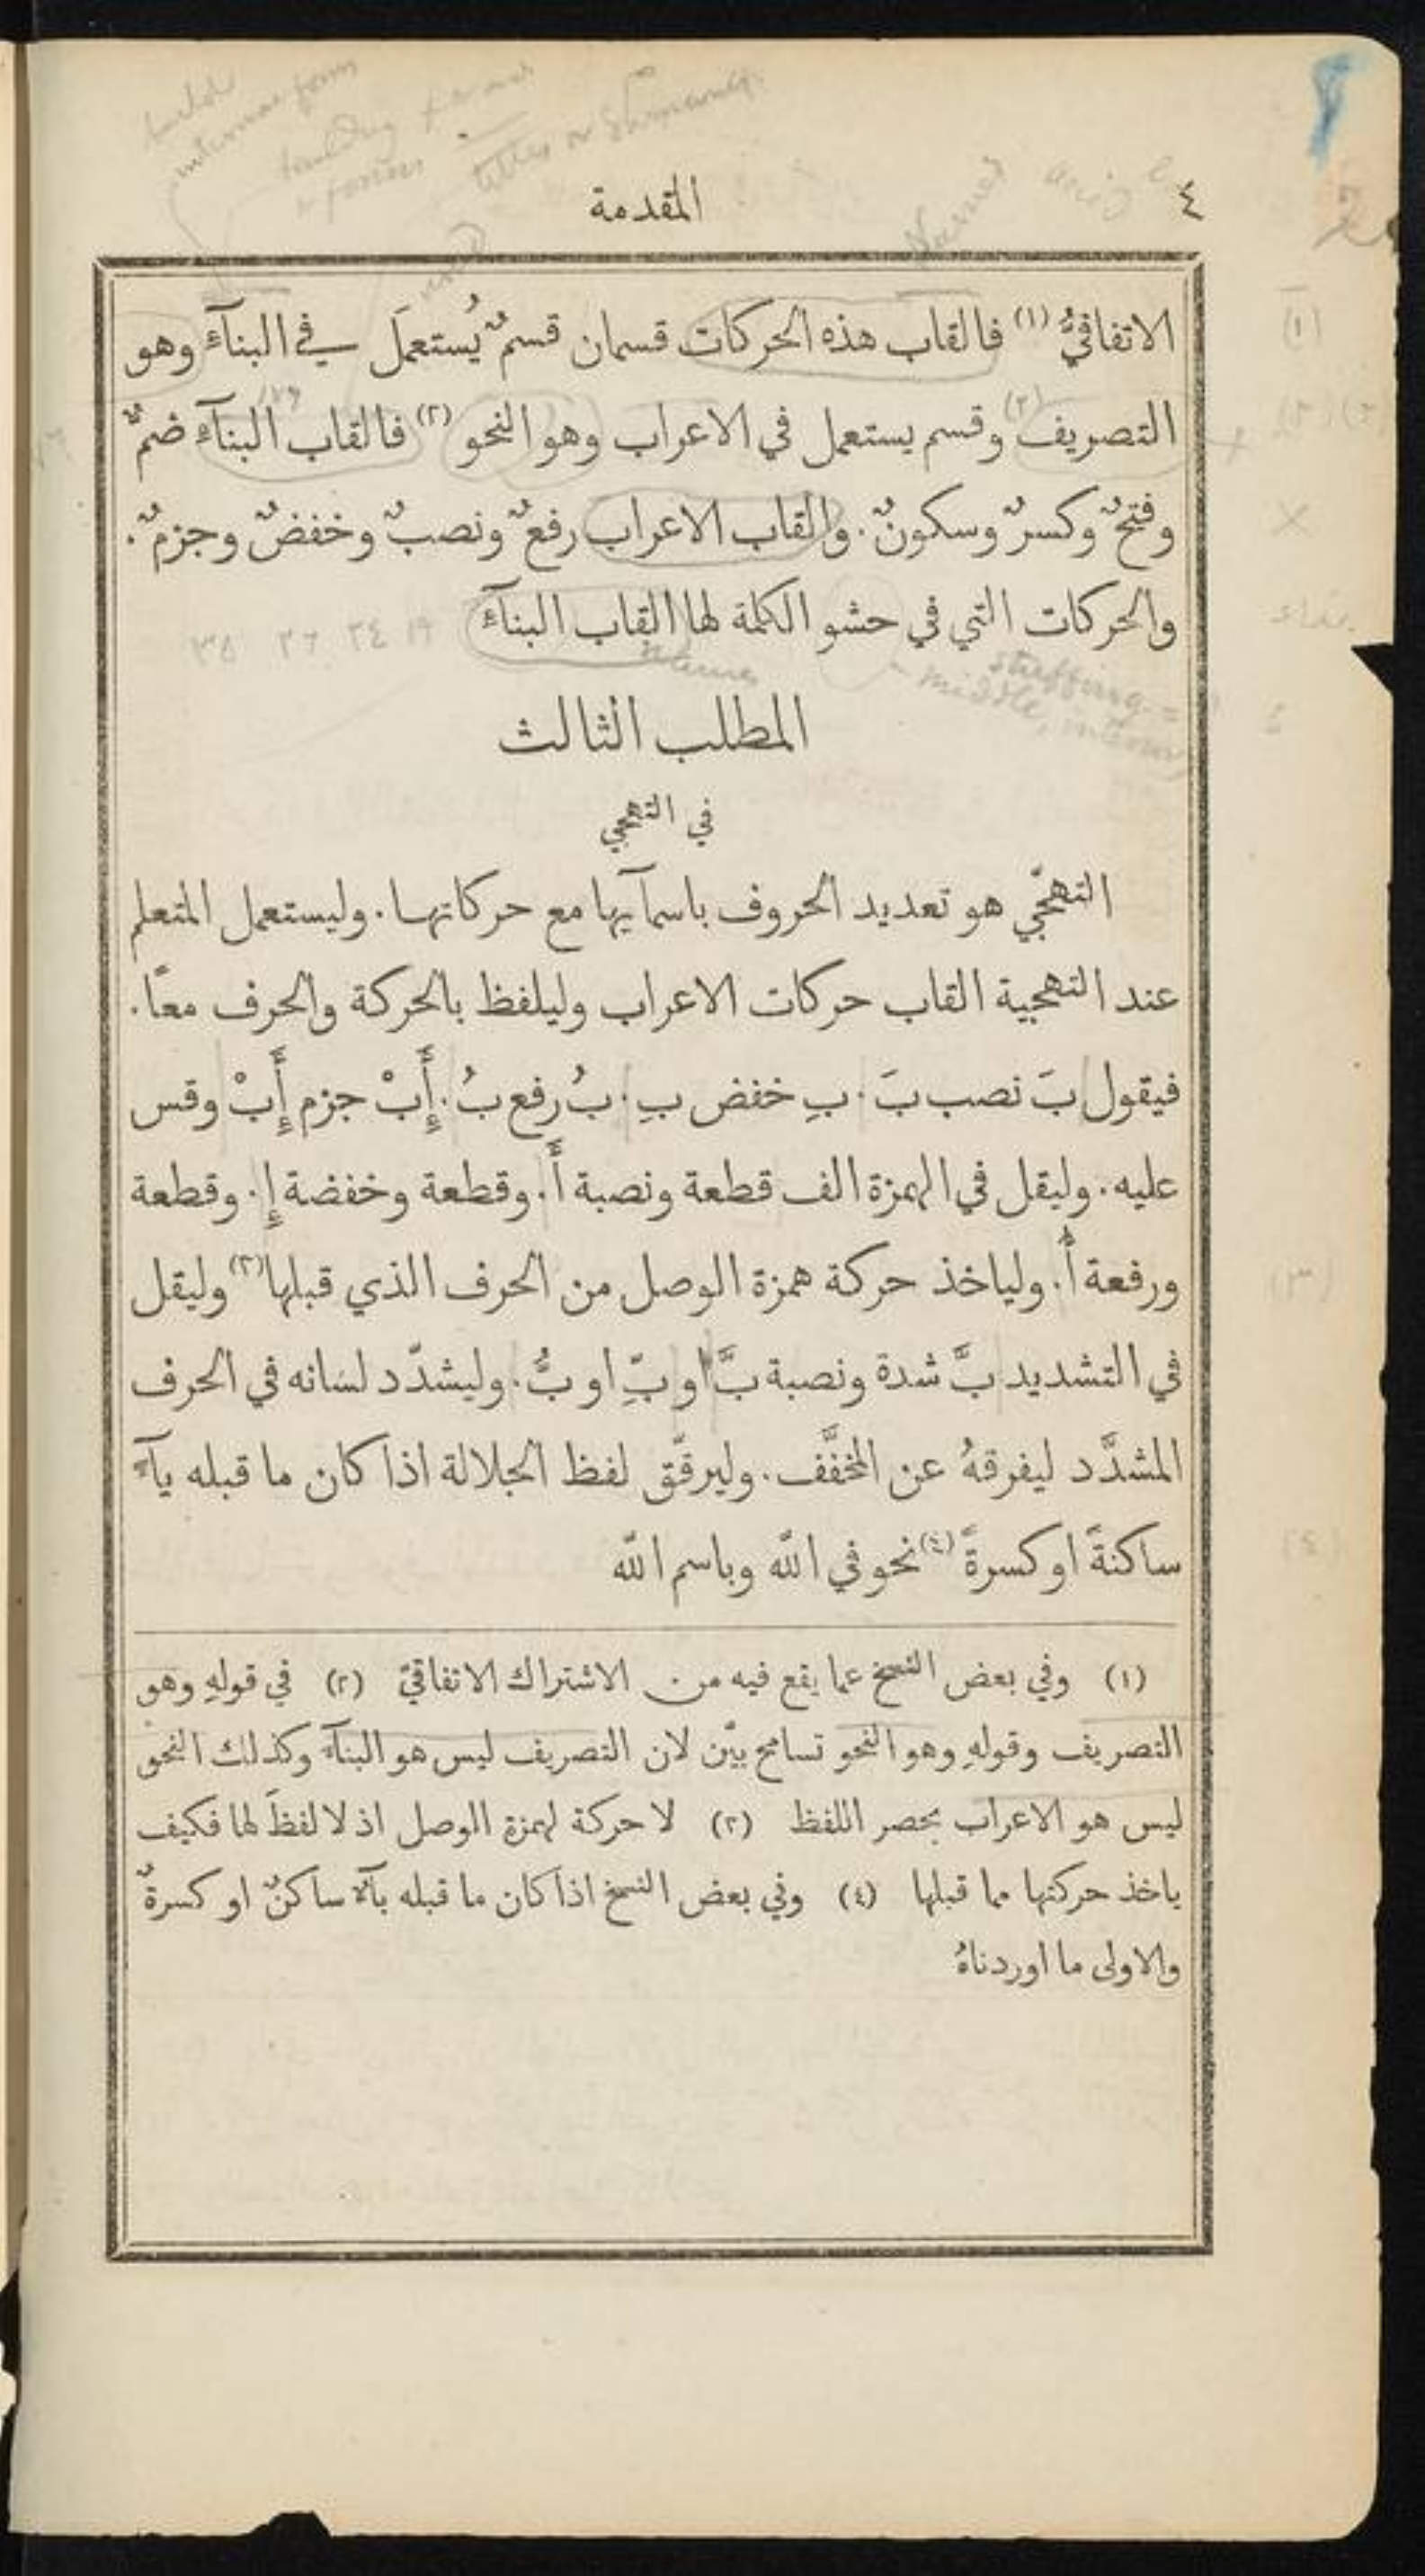 ٤
المقدمة
الاتفاقيُّ (١) فالقاب هذه الحركات قسمان قسمٌ يُستعمَل في البنآءِ وهو
التصريف (٢) وقسم يستعمل في الاعراب وهو النحو (٢) فالقاب البنآءِ ضمٌّ
وفتحٌ وكسرٌ وسكونٌ. والقاب الاعراب رفعٌ ونصبٌ وخفضٌ وجزمٌ.
والحركات التي في حشو الكلمة لها القاب البنآءِ
١٩ ٢٤ ٢٦ ٣٥
stuffing =
middle, interior
المطلب الثالث
في التهجي
التهجّي هو تعديد الحروف باسمآيها مع حركاتها. وليستعمل المتعلم
عند التهجية القاب حركات الاعراب وليلفظ بالحركة والحرف معًا.
فيقول بَ نصب بَ. بِ خفض بِ. بُ رفع بُ. إَُبْ جزم إَُبْ وقس
عليه. وليقل في الهمزة الف قطعة ونصبة أَ. وقطعة وخفضة إِ. وقطعة
ورفعة أُ. ولياخذ حركة همزة الوصل من الحرف الذي قبلها (٣) وليقل
في التشديد بَّ شدة ونصبة بَّ او بِّ او بُّ. وليشدّد لسانه في الحرف
المشدَّد ليفرقهُ عن المخفَّف. وليرقّق لفظ الجلالة اذا كان ما قبله يآءً
ساكنةً او كسرةً (٤) نحو في الله وباسم الله
(١) وفي بعض النسخ عما يقع فيه من الاشتراك الاتفاقيّ (٢) في قولهِ وهو
التصريف وقولهِ وهو النحو تسامح بيّن لان التصريف ليس هو البنآءَ وكذلك النحو
ليس هو الاعراب بحصر اللفظ (٣) لا حركة لهمزة الوصل اذ لا لفظَ لها فكيف
ياخذ حركتها مما قبلها (٤) وفي بعض النسخ اذا كان ما قبله يآءٌ ساكنٌ او كسرةٌ
والاولى ما اوردناهُ